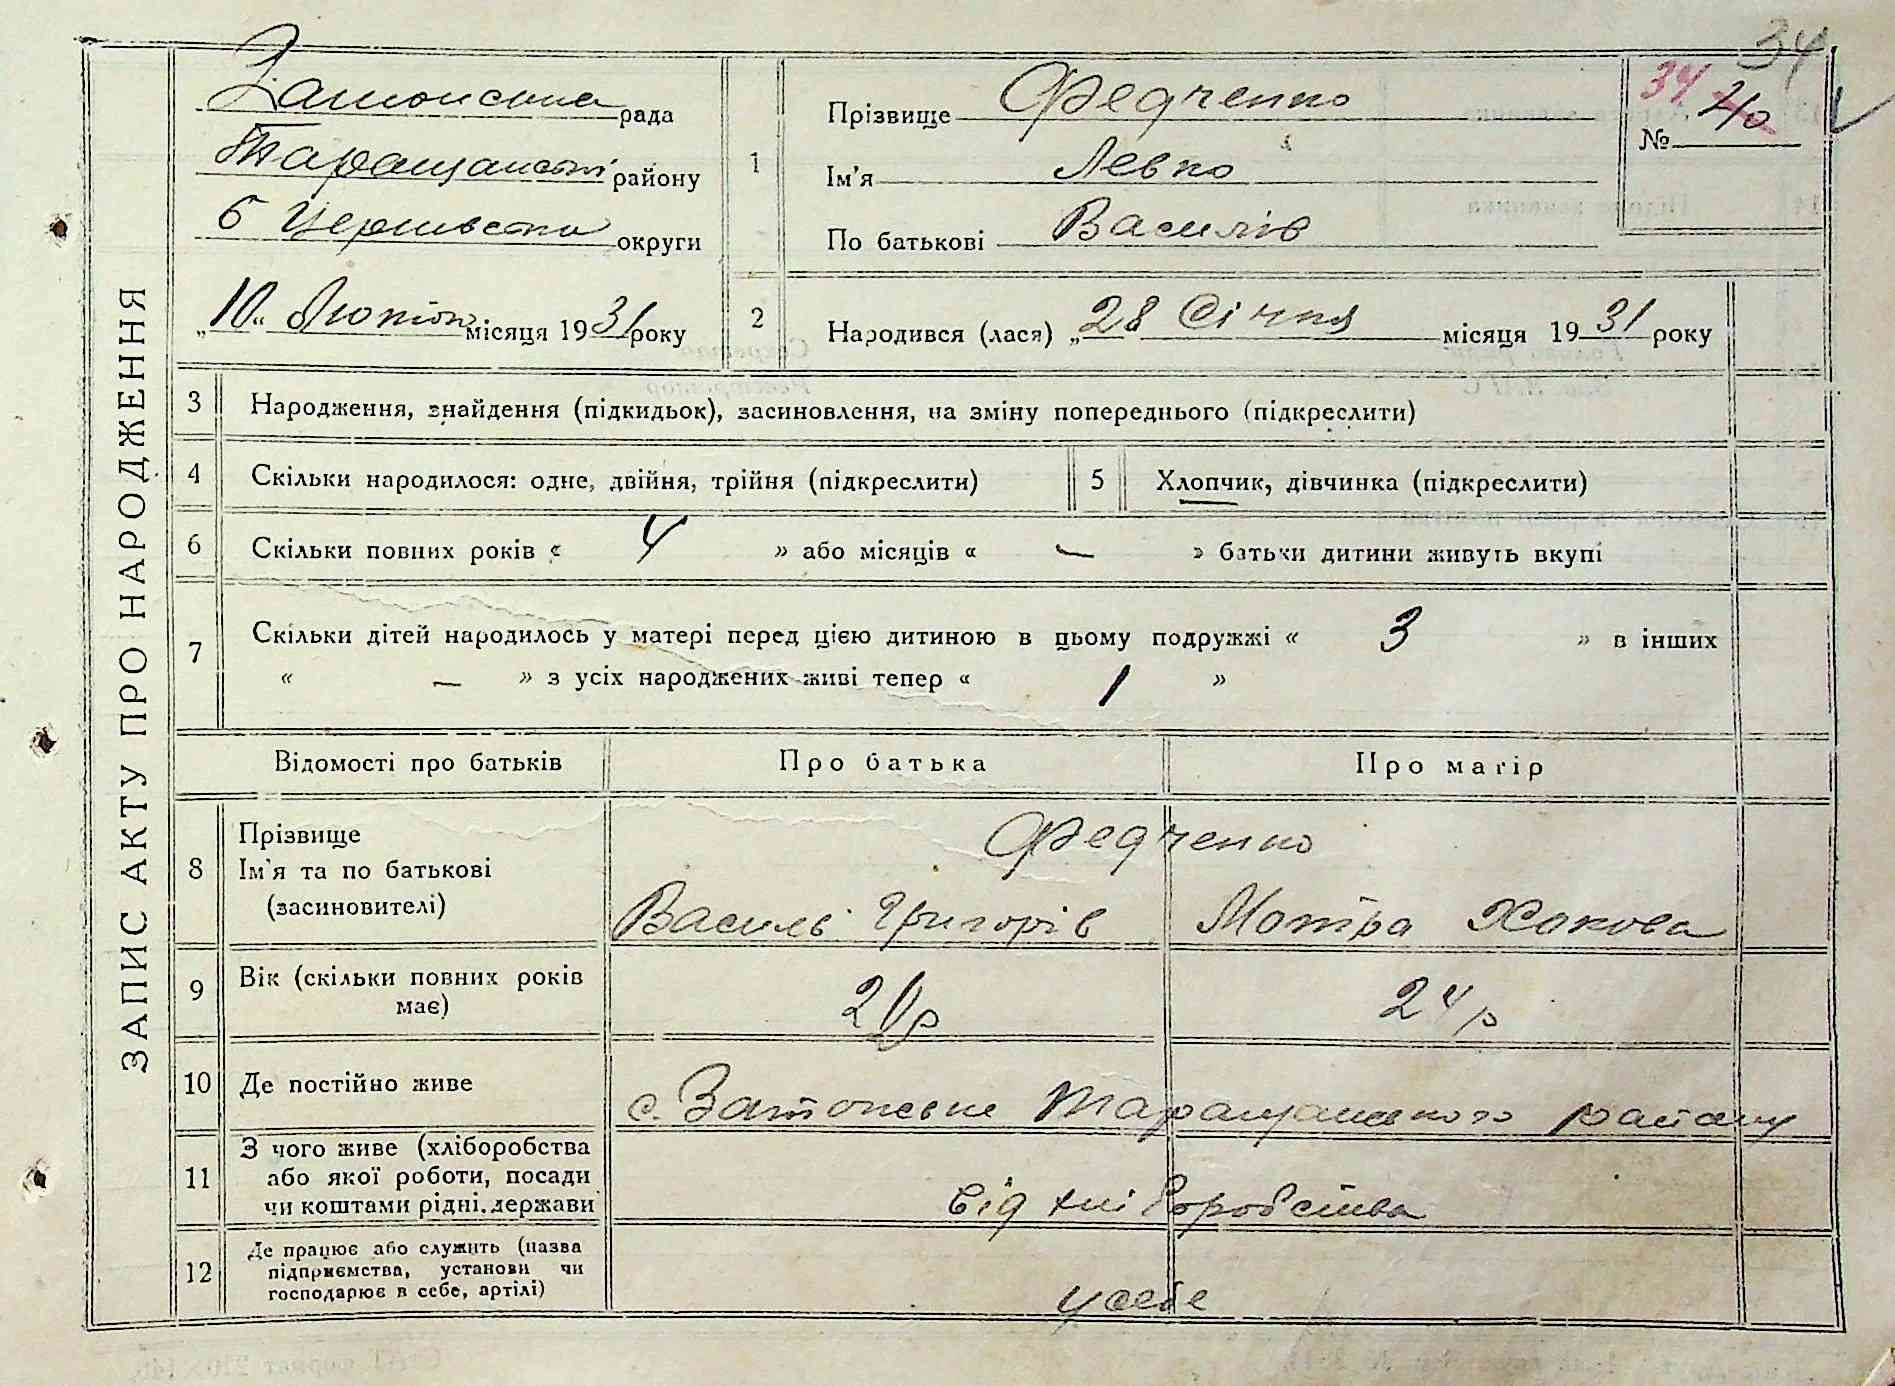 ЗАПИС АКТУ ПРО НАРОДЖЕННЯ
34
Затонська рада
Таращанськ району
Б Церківська округи
„10“ Лютого місяця 1931 року
1
Прізвище Федченко
Ім'я Левко
По батькові Василів
34 40
№
2
Народився (лася) „28 Січня місяця 1931 року
3 Народження, знайдення (підкидьок), засиновлення, на зміну попереднього (підкреслити)
4 Скільки народилося: одне, двійня, трійня (підкреслити)
5 Хлопчик, дівчинка (підкреслити)
6 Скільки повних років « 4 » або місяців « — » батьки дитини живуть вкупі
7 Скільки дітей народилось у матері перед цією дитиною в цьому подружжі « 3 » в інших
« — » з усіх народжених живі тепер « 1 »
Відомості про батьків Про батька Про матір
8 Прізвище
Ім'я та по батькові
(засиновителі)
Федченко
Василь Григорів Мотра
9 Вік (скільки повних років
має)
24 р
10 Де постійно живе
с. Затонське Таращанського району
11 З чого живе (хліборобства
або якої роботи, посади
чи коштами рідні, держави
від хліборобства
12 Де працює або служить (назва
підприємства, установи чи
господарює в себе, артілі)
у себе